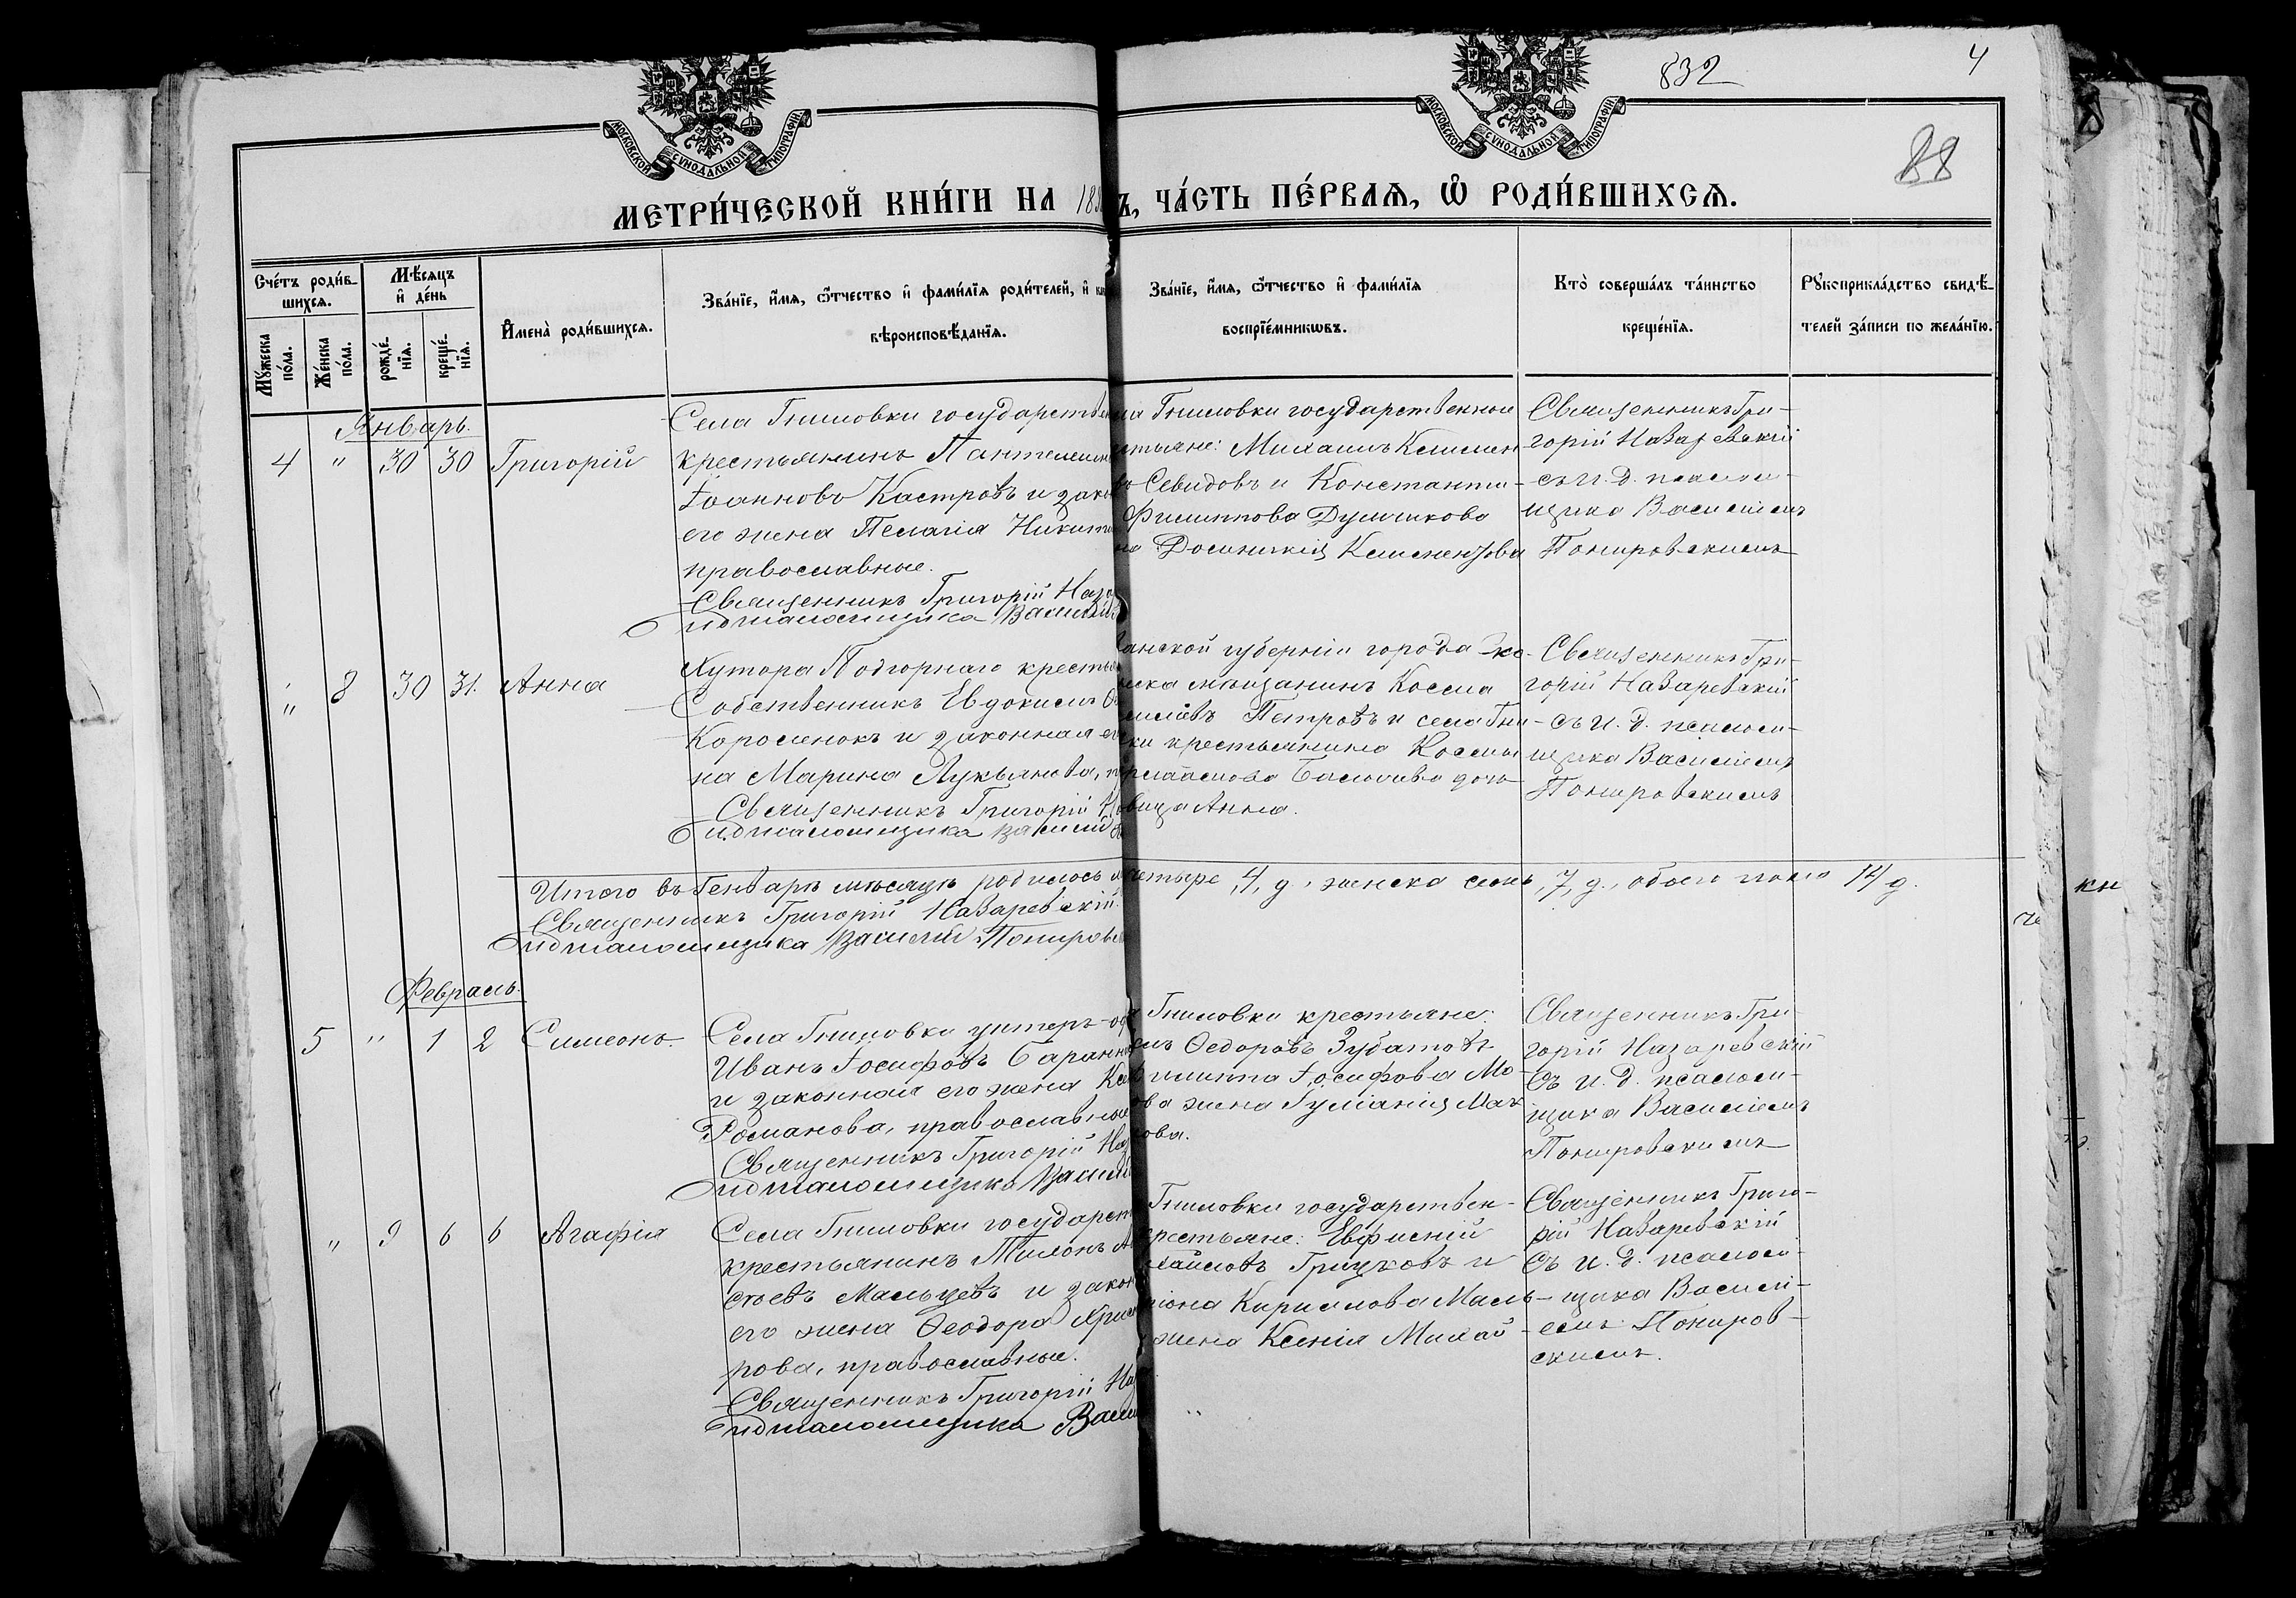 832
4
88
МОСКОВСКОЙ СѴНОДАЛЬНОЙ ТИПОГРАФІИ
МОСКОВСКОЙ СѴНОДАЛЬНОЙ ТИПОГРАФІИ
МЕТРИ́ЧЕСКОЙ КНИ́ГИ НА 18 Ъ, ЧА́СТЬ ПЕ́РВАѦ, Ѽ РОДИ́ВШИХСѦ.
Сче́тъ роди́в-
шихсѧ.
Мꙋ́жеска по́ла.
Же́нска по́ла.
Мѣ́сѧцъ и҆ де́нь
рожде́-нїѧ.
креще́-нїѧ.
И҆мена̀ роди́вшихсѧ.
Зва́нїе, и҆́мѧ, ѻ҆́тчество и҆ фами́лїѧ роди́телей, и҆
вѣроисповѣ́данїѧ.
Зва́нїе, и҆́мѧ, ѻ҆́тчество и҆ фами́лїѧ
воспрїе́мникѡвъ.
Кто̀ соверша́лъ та́инство
креще́нїѧ.
Рꙋкоприкла́дство свидѣ́-
телей за́писи по жела́нїю.
Январь.
4 " 30 30 Григорій
Села Гниловки государствен
крестьянинъ Пантелеимонъ
Іоанновъ Кастровъ и закон
его жена Пелагія Никити
православные.
Священникъ Григорій Наза
и д псаломщика Василій
Гниловки государственные
стьяне: Михаилъ Климен
Севидовъ и Константи-
Филиппова Дуличкова
Климентова
Священникъ Гри-
горій Назаревскій
съ и. д. псаломщ-
щика Василіемъ
Понировскимъ
" 8 30 31. Анна
Хутора Подгорнаго крестья
Собственникъ Евдокимъ
Короленокъ и законная е
на Марина Лукьянова, п
Священникъ Григорій Н
и д псаломщика Василій
анской губерніи города
мѣщанинъ Косма
Петровъ и села Гни-
ки крестьянина Космы
дочь
вица Анна.
Священникъ Гри-
горій Назаревскій
съ и. д. псалом-
щика Василіемъ
Понировскимъ
Итого въ Генварѣ мѣсяцѣ родилось четыре, 4, д., женска семь, 7, д., обоего пола 14 д.
Священникъ Григорій Назаревскій
и д псаломщика Василій Понировс
Февраль.
5 " 1 2 Симеонъ.
Села Гниловки унтеръ-оф
Иванъ Іосифовъ Баранни
и законная его жена
Романова, православные
Священникъ Григорій Наз
и д псаломщика Васил
Гниловки крестьяне:
Ѳедоровъ Зубатовъ
Филиппа Іосифова Мо-
ва жена Іуліанія Мак
кова.
Священникъ Гри
горій Назаревскій
Съ и. д. псалом-
щика Василіемъ
Понировскимъ
" 9 6 6 Агафія
Села Гниловки государст
крестьянинъ Тихонъ А
сѣевъ Мальцевъ и закон
его жена Ѳеодора Хрис
рова, православные.
Священникъ Григорій На
и д псаломщика Васи
Гниловки государствен-
крестьяне: Евфимій
хайловъ Грицковъ и
іона Кирилова Маль-
жена Ксенія Михай-
Священникъ Григо-
рій Назаревскій
Съ и. д. псалом-
щика Василі-
емъ Пониров-
скимъ.